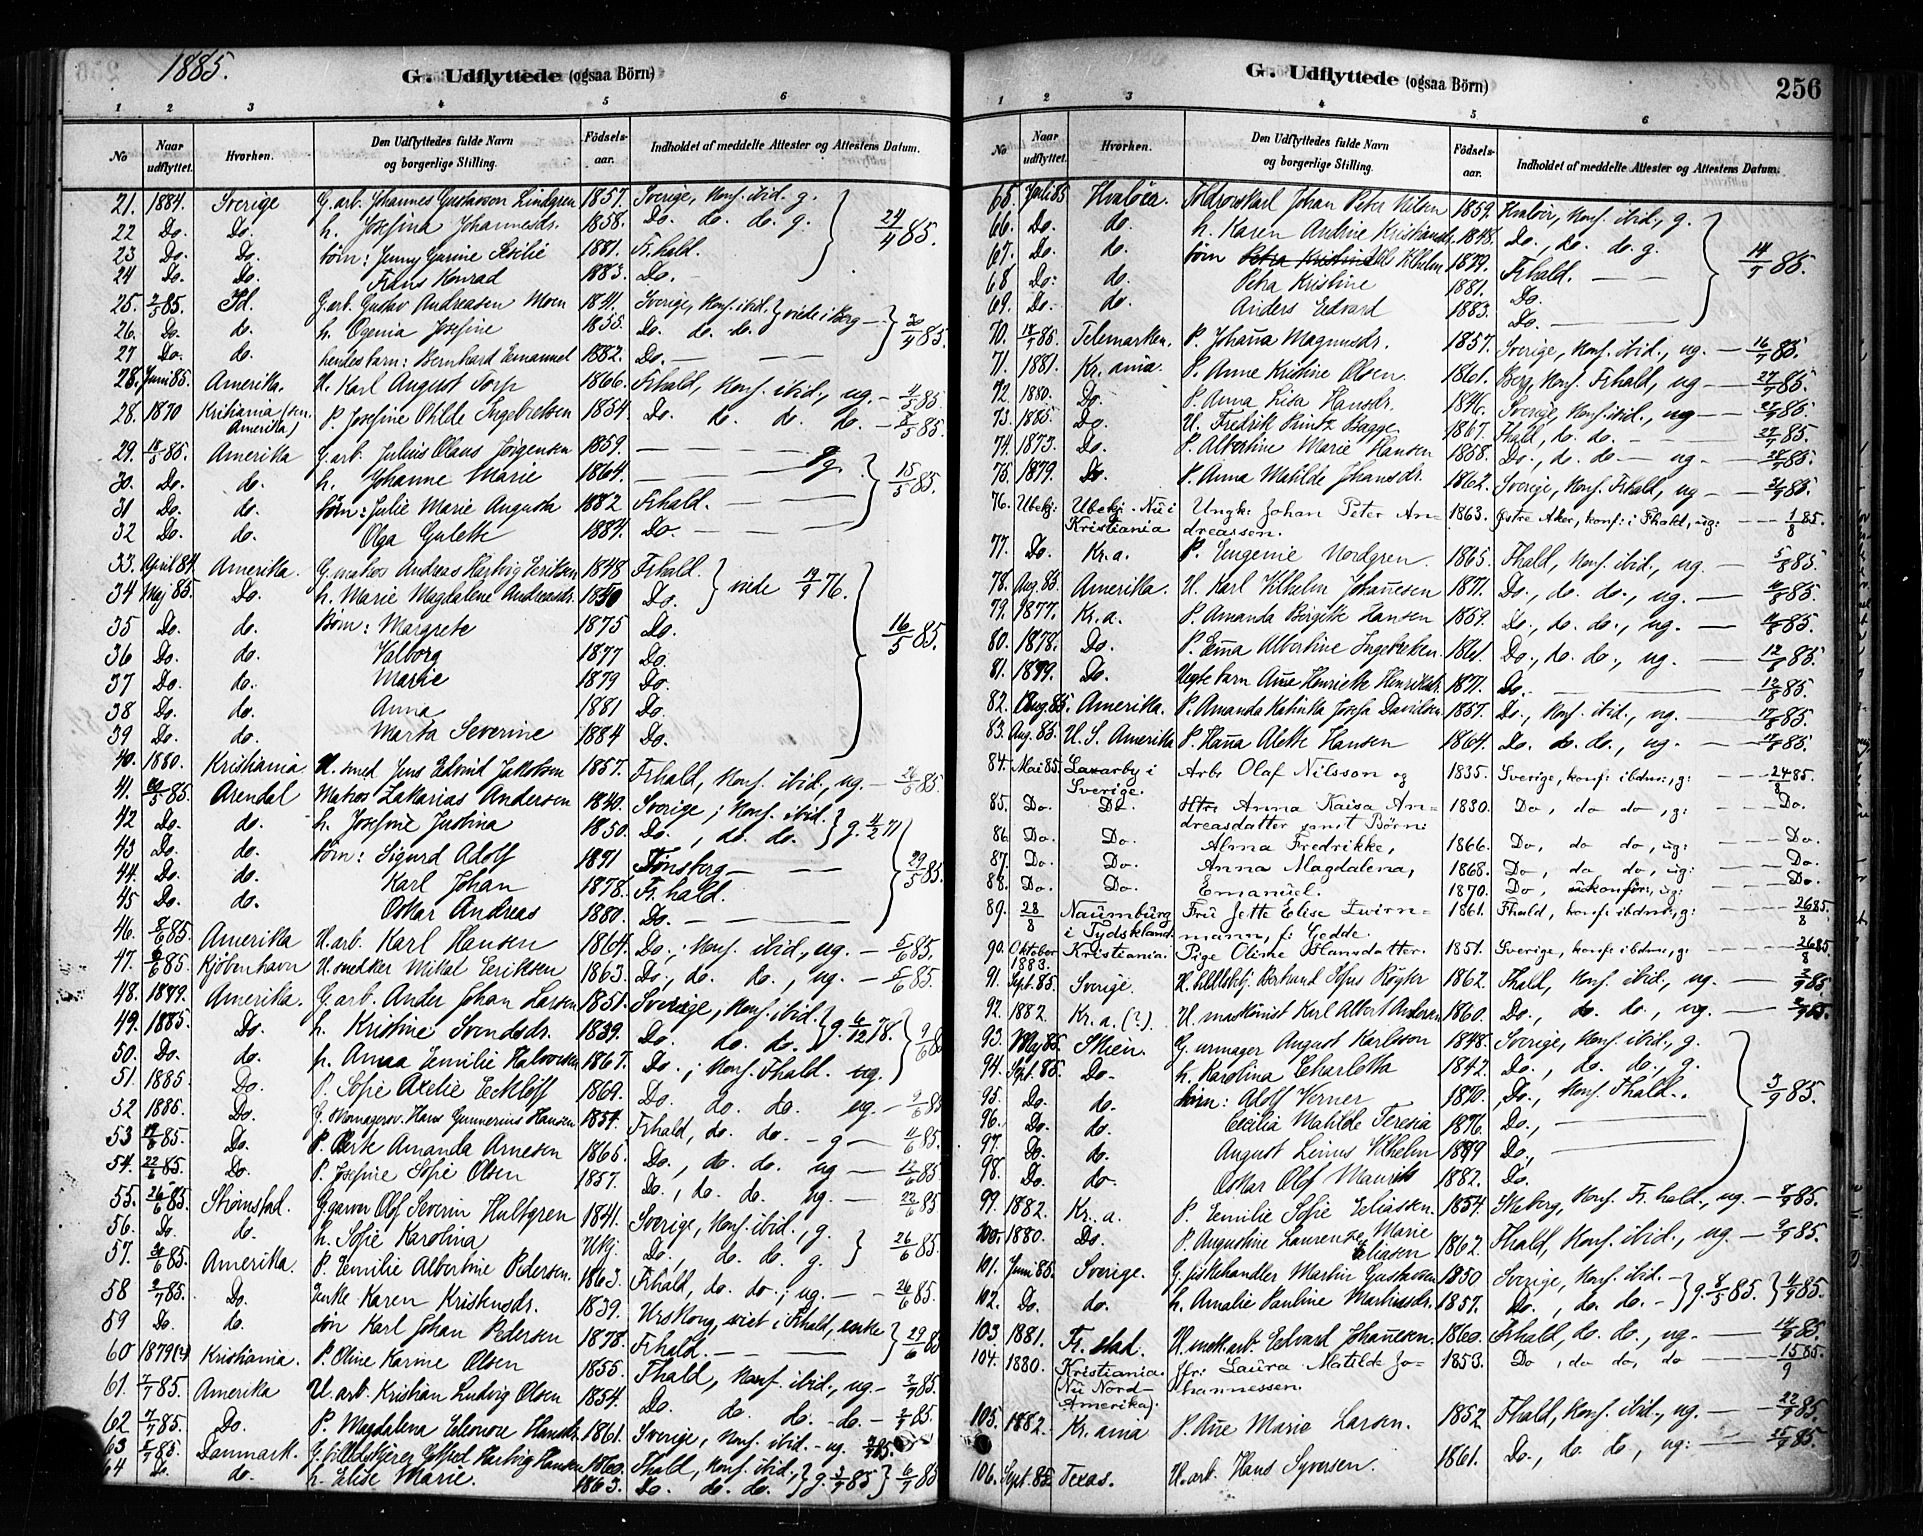 1885.
G. Udflyttede (ogsaa Börn)
1 2 3 4 5 6
No Naar udflyttet. Hvorhen. Den Udflyttedes fulde Navn og borgerlige Stilling. Fødsels-aar. Indholdet af meddelte Attester og Attestens Datum.
21. 1884. Sverige G. arb. Johannes Gustavson Lindgren 1857. Sverige, Konf. ibid. g.
22 Do. Do. h. Josefina Johannesdr. 1858. Do. do. do. g. 24/4 85.
23 Do. Do. börn: Jenny Garine 1881. Fr.hald.
24 Do. Do. Frans Konrad 1883. Do.
25. 2/5 85. Id. G. arb. Gustav Andreasen Moen 1841. Sverige, Konf. ibid. } viede i Berg
26. Do. do. h. Ogenia Josefine 1855. Do. do. do. 30/4 85.
27 Do. do. hendes barn: Bernhard Emanuel 1882. Do.
28. Juni 85. Amerika. U. Karl August Torp 1866. Fr.hald, Konf. ibid., ug. 4/5 85.
28. 1870 Kristiania (sen. Amerika) P. Josefine Othilde Ingebretsen 1854. Do. do. do. do. 5/5 85.
29. 18/5 85. Amerika G. arb. Julius Olaus Jørgensen 1859. g.
30. Do. do. h. Johanne Marie 1864. g. 15/5 85.
31 Do. do. Börn: Julie Marie Augusta 1882 Fr.hald.
32 Do. do. Olga Gulette 1884. Do.
33. April 84. Amerika. G. matros Andreas Hartvig Eriksen 1848 Fr.hald.
34 Maj 85. Do. h. Marie Magdalene Andreasdr. 1850 Do. } viede 19/9 76.
35 Do. do. Børn: Margrete 1875 Do. 16/5 85.
36 Do. do. Valborg 1877 Do.
37 Do. do. Marie 1879 Do.
38 Do. do. Anna 1881 Do.
39 Do. do. Marta Severine 1884 Do.
40. 1880. Kristiania. U. smed Jens Edvind Jakobsen 1857. Fr.hald, Konf. ibid, ug. 26/5 85.
41. 26/5 85. Arendal Matros Zakarias Andersen 1840. Sverige; Konf. ibid.
42 Do. do. h. Josefine Justina 1850. Do., do. do. } g. 4/2 71
43 Do. do. börn: Sigurd Adolf 1871 Tønsberg 29/5 85.
44. Do. do. Karl Johan 1878. Fr.hald.
45 Do. do. Oskar Andreas 1880. Do.
46. 5/6 85. Amerika U. arb. Karl Hansen 1864. Do.; Konf. ibid., ug. 5/6 85.
47. 6/6 85. Kjöbenhavn U. snedker Mikal Eriksen 1863. Do., do. do., ug. 5/6 85.
48. 1879. Amerika. G. arb. Ander Johan Larsen 1851. Sverige, Konf. ibid.
49. 1885. Do. h. Kristine Svendsdr. 1839. Do. do. do. } g. 6/12 78. 9/6 8
50. Do. do. h. Anna Emilie Halvorsen 1867. Do.; Konf. Fhald. ug.
51. 1885 Do. P. Sofie Axelie Ecklöff 1869. Do. do. do. ug. 9/6 85
52 1885. Do. Hans Gunnerius Hansen 1854. Fr.hald, do. do. g 11/6 85.
53 17/6 85. Do. P. Berte Amanda Arnesen 1865. Do., do. do. ug 12/6 85.
54. 22/6 85. Do. P. Josefine Sofie Olsen 1857. Do., do. do. ug. 22/6 85
55. 26/6 85. Strömstad. G. garver Olof Severin Hultgren 1841. Sverige, Konf. ibid., g.
56. Do. do. h. Sofie Karolina Ukj. Do., do. do. g. } 26/6 85.
57. 30/6 85. Amerika. P. Emilie Albertine Pedersen. 1863. Fr.hald, do. do.; ug. 26/6 85.
58 2/7 85. Do. Enke Karen Kristensdr. 1839. Urskoug, viet i Fr.hald, enke
59 Do. do. sön Karl Johan Pedersen 1878. Fr.hald. } 29/6 85
60 1879 (?) Kristiania. P. Oline Karine Olsen 1855. Fhald, Konf. ibid., ug. 2/7 85.
61. 7/7 85. Amerika U. arb. Kristian Ludvig Olsen 1854. Do. do. do. do. 2/7 85.
62 7/7 85. Do. P. Magdalena Eleonora Hansdr. 1861. Sverige, Konf. ibid. ug. 85.
63 7/7 85. Danmark. G. Alfred Hartvig Hansen 1860. Fhald, Konf. ibid.,
64 Do. do. h. Elise Marie. 1863. Do. do. do. } g. 3/7 85 } 6/7 85
G. Udflyttede (ogsaa Börn)
256
1 2 3 4 5 6
No Naar udflyttet. Hvorhen. Den Udflyttedes fulde Navn og borgerlige Stilling. Fødsels-aar. Indholdet af meddelte Attester og Attestens Datum.
65. Juli 85 Hvalöer. Toldrorskarl Johan Peter Nilsen 1859. Hvalöer, Konf. ibid., g.
66. Do. do. h. Karen Andrine Kristiansdr. 1848. Do., do. do. g. 14/7 85.
67. Do. do. börn Vilhelm 1879. Fr.hald.
68 Do. do. Petra Kristine 1881. Do.
69. Do. do. Anders Edvard 1883. Do.
70. 17/7 85. Telemarken. P. Johana Magnusdr. 1857. Sverige, Konf. ibid., ug. 16/7 85.
71. 1881. Kr.ania. P. Anne Kristine Olsen. 1861. Berg, Konf. Fr.hald, ug 27/7 85.
72. 1880. Do. P. Anna Lisa Hansdr. 1846. Sverige, Konf. ibid., ug 27/7 85.
73. 1885. Do. U. Fredrik Printz Bagge. 1867. Fhald, do. do. 27/7 85.
74. 1873. Do. P. Albertine Marie Hansen 1858. Do., do. do. ug. 28/7 85.
75. 1879. Do P. Anna Matilde Johansdr. 1862. Sverige, Konf. Fr.hald, ug 31/7 85.
76. Ubekj: Ubekj: Nu i Kristiania Ungk: Johan Peter Andreasson. 1863. Östre Aker, konf: i Fhald, ug: 1/8 85.
77. Do. Kr.a. P. Eugenie Nordgren. 1865. Fhald, Konf. ibid., ug 5/8 85.
78. Aug. 85. Amerika. U. Karl Vilhelm Johanesen 1871. Do., do. do., ug. 11/8 85.
79. 1877. Kr.a. P. Amanda Birgitte Hansen 1859. Do., do. do., ug. 11/8 85.
80. 1878. Do. P. Ema Albertine Ingebretsen. 1861. Do., do. do., ug. 12/8 85.
81. 1879. Do. Uegte barn Anne Henriette Henriksdr. 1871. Do. 12/8 85.
82. Aug. 85. Amerika. P. Amanda Katinka Josefa Davidsen 1857. Do., Konf. ibid., ug. 17/8 85.
83. Aug. 85. U.S. Amerika P. Hana Alette Hansen 1864. Do. do. do., ug. 17/8 85.
84. Mai 85. Laxarby i Sverige. Arbr Olaf Nilsson og 1835. Sverige, konf: ibdm:, g: 24/8 85.
85. Do. Do. Hstr Anna Kaisa Andreasdatter samt Börn: 1830. Do, do do, g: Do.
86 Do. Do. Alma Fredrikke, 1866. Do, do do, ug: Do.
87. Do. Do. Anna Magdalena, 1868. Do, do do, ug: Do.
88. Do. Do. Emanuel. 1870. Do, ukonfir:, ug: Do.
89. 28/8 Naumburg i Tydskland Fru Jette Elise Zwirnmann, f: Gedde. 1861. Fhald, konf: ibdm:, g: 26/8 85.
90. Oktober 1883. Kristiania. Pige Oline Hansdatter. 1851. Sverige, konf: ibdm:, g: 26/8 85
91. Sept. 85. Sverige. Bertrand Sofus Röyter 1862. Fhald, Konf. ibid., ug. 2/9 85.
92. 1882. Kr.a. (?). U. maskinist Karl Albert Andersen 1860. Do., do. do., ug. 2/9 85.
93. Maj 85. Skien. G. urmager August Karlsson 1848. Sverige, Konf. ibid., g.
94. Sept. 85. Do. h. Karolina Charlotta 1842. Do., do. do., g.
95. Do. do. Börn: Adolf Verner 1870. Do., Konf. Fhald. 3/9 85.
96. Do. do. Cecilia Matilde Teresia 1876. Do.,
97. Do. do. August Linus Vilhelm 1879 Do.,
98. Do. do. Oskar Olof Maurits 1882. Do.
99. 1882. Kr.a. P. Emilie Sofie Eliassen. 1854. Skeberg, Konf. Fr.hald., ug. 7/9 85.
100. 1880. Do. P. Augustine Laurentze Marie Eliassen 1862. Fhald, Konf. ibid., ug. 7/9 85.
101. Juni 85. Sverige. G. fiskehandler Martin Gustavsen 1850 Sverige, Konf. ibid.
102. Do. do. h. Amalie Pauline Mathiasdr. 1857. Do., do. do. } g. 8/5 85. } 11/9 85.
103. 1881. Fr.stad. U. Edvard Johanesen. 1860. Fr.hald, do. do., ug. 14/9 85.
104. 1880. Kristiania. Nu Nord-Amerika). Jfr: Laura Matilde Johannessen. 1853. Do, do do, do 15/9 85.
105. 1882. Kr.ania P. Ane Marie Larsen. 1852 Fhald, Konf. ibid., ug. 22/9 85.
106. Sept. 85 Texas. U. arb. Hans Syversen. 1861. Do., do. do., ug. 25/9 85.